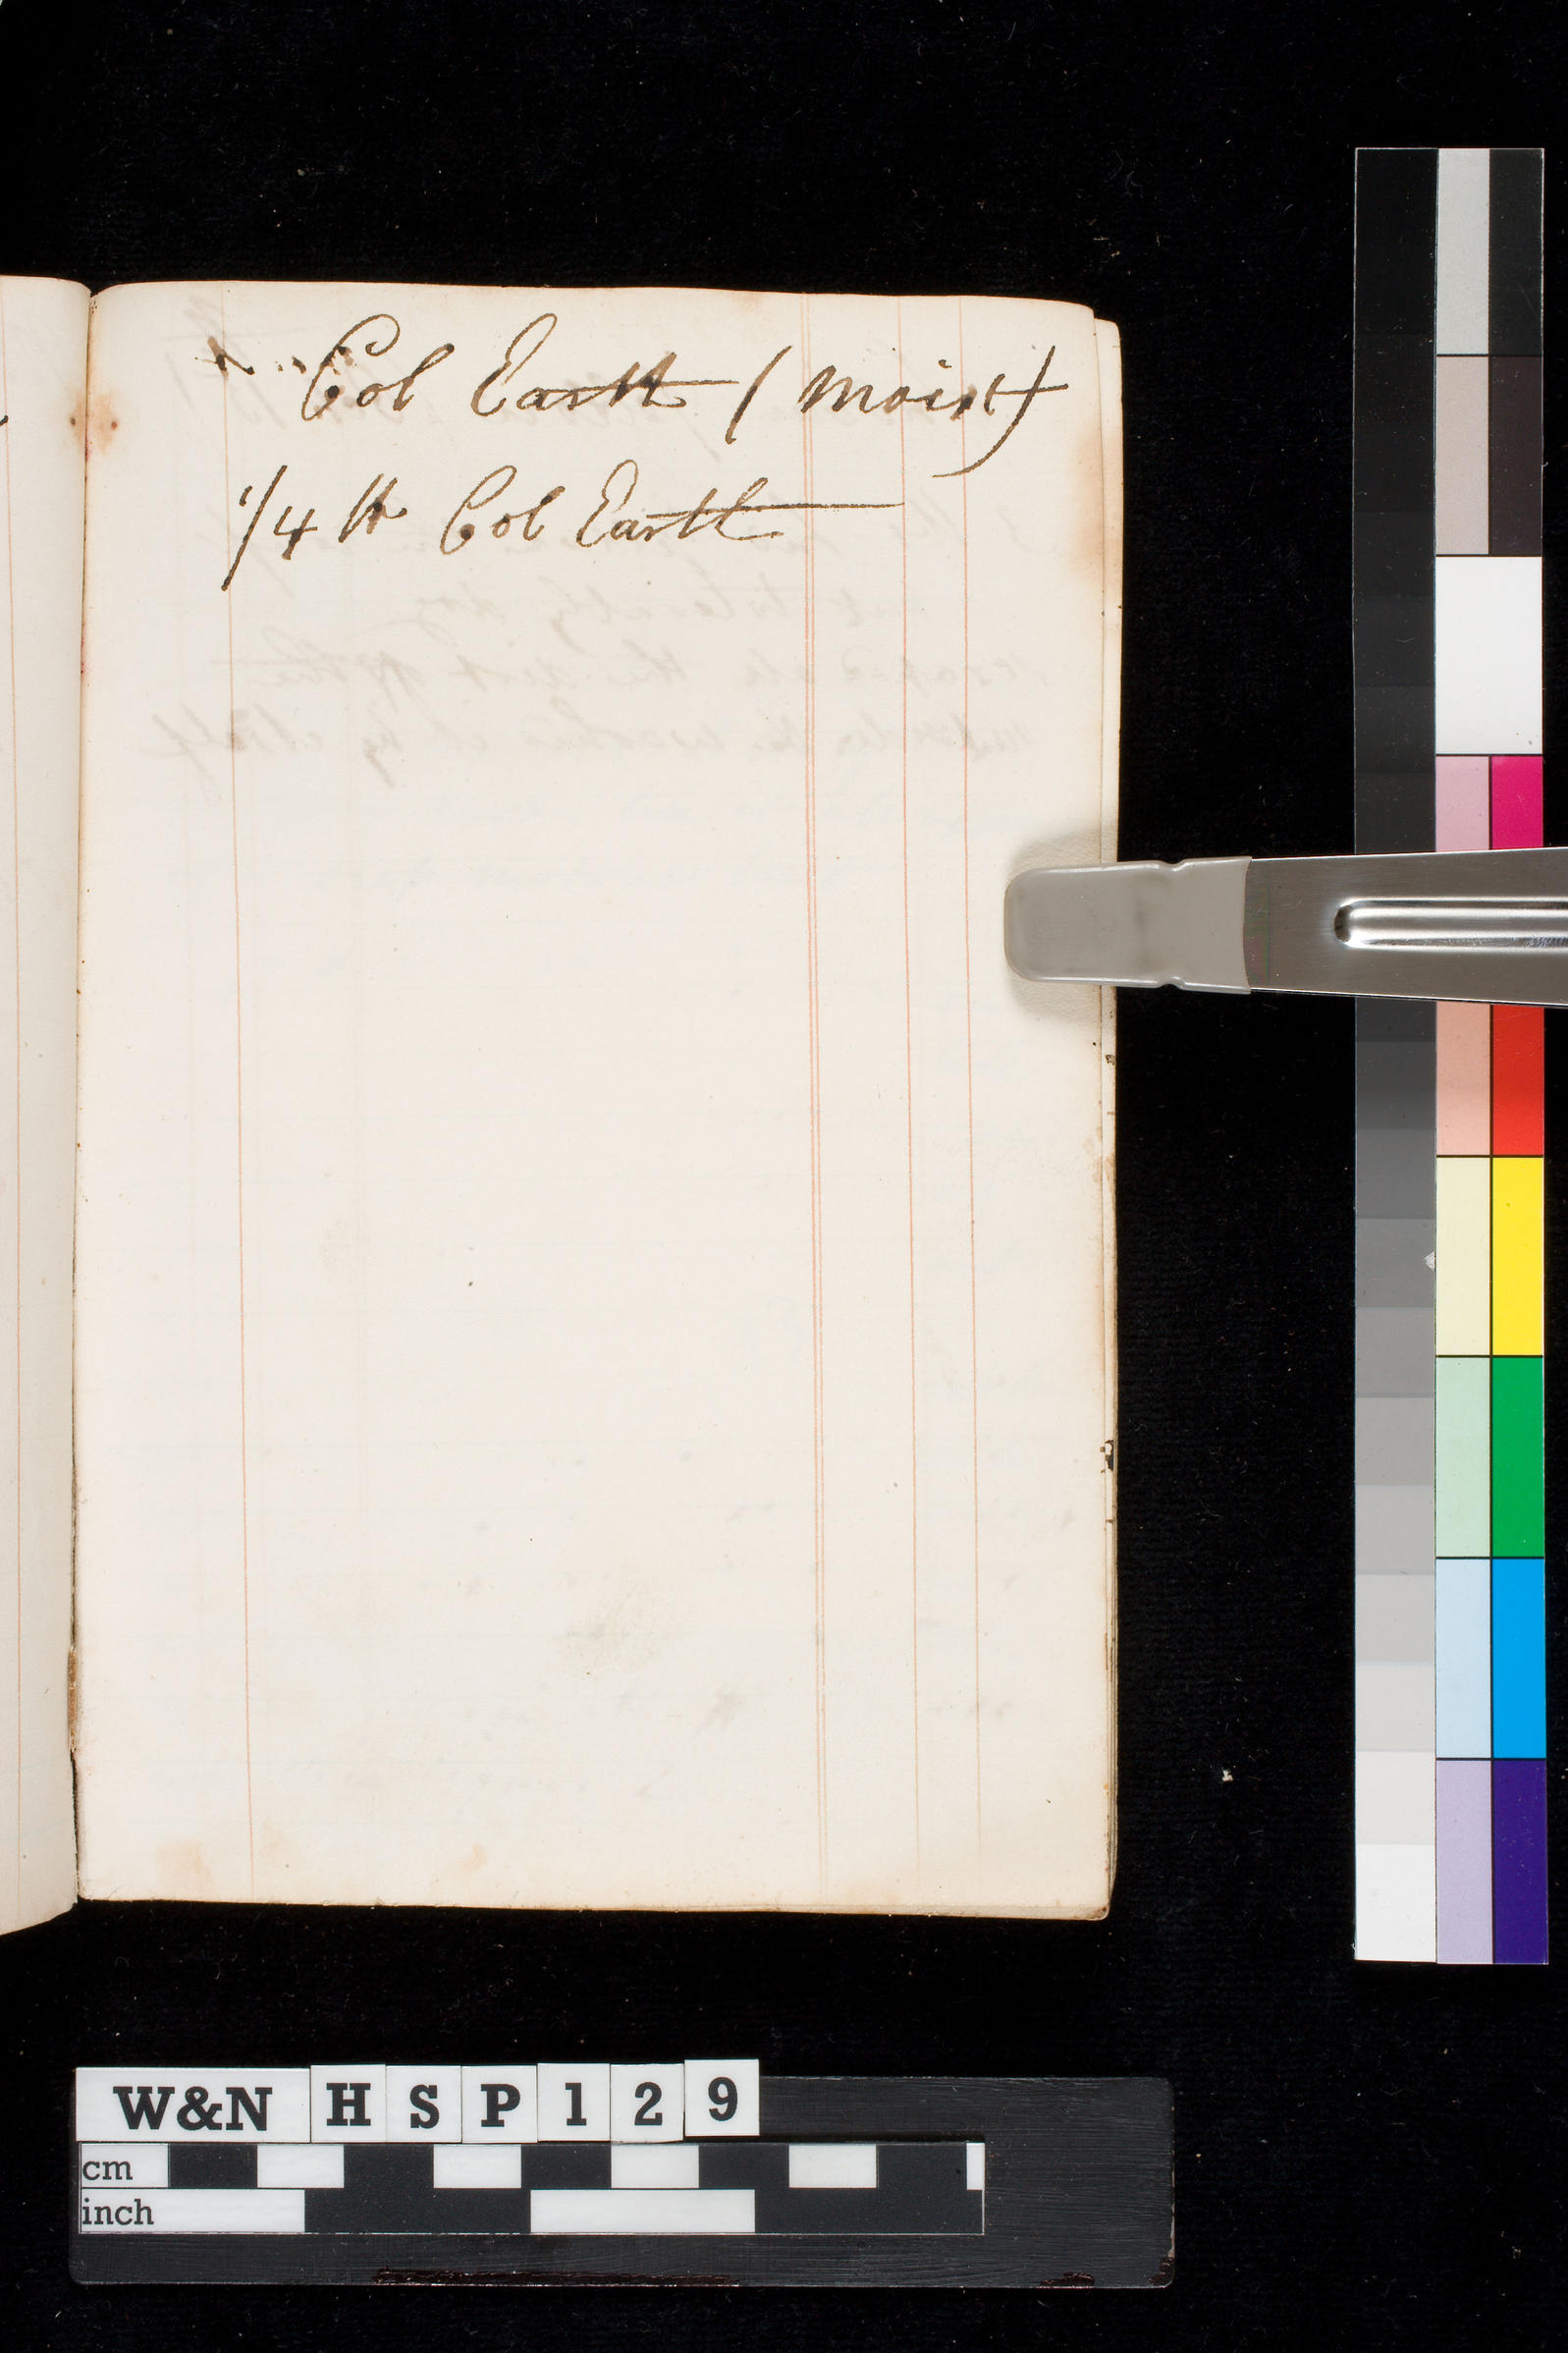 Col Earth (Moist)
1/4 lb Col Earth
W&N HSP129
cm
inch